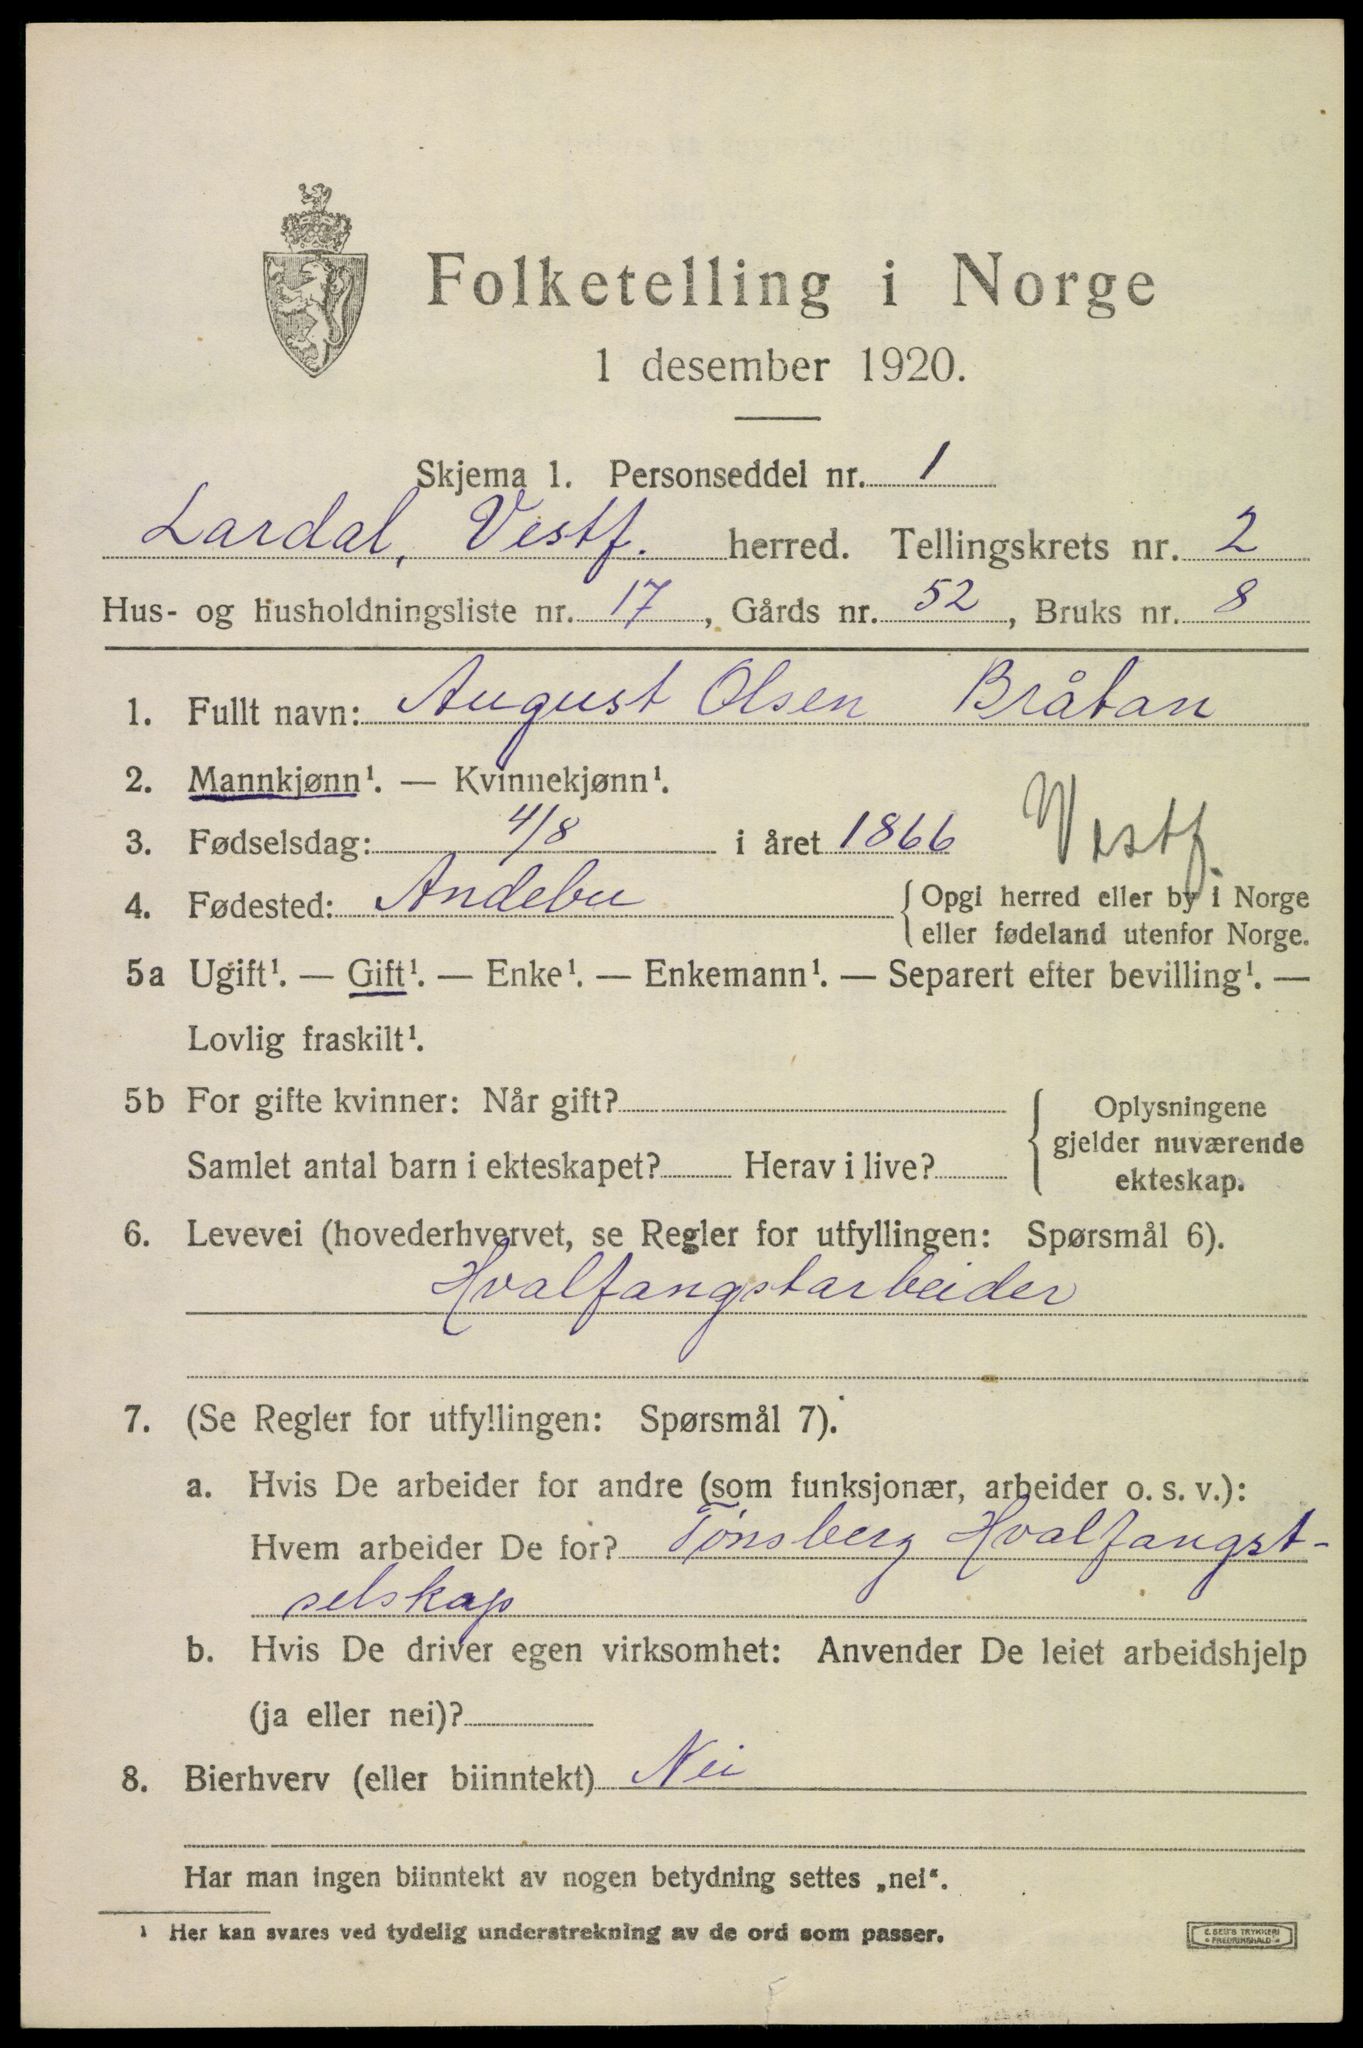 Folketelling i Norge
1 desember 1920.
Skjema 1. Personseddel nr. 1
Lardal, Vestf. herred. Tellingskrets nr. 2
Hus- og husholdningsliste nr. 17, Gårds nr. 52, Bruks nr. 8
1. Fullt navn: August Olsen Bråtan
2. Mannkjønn¹. — Kvinnekjønn¹.
3. Fødselsdag: 4/8 i året 1866 Vestf.
4. Fødested: Andebu { Opgi herred eller by i Norge
eller fødeland utenfor Norge.
5a Ugift¹. — Gift¹. — Enke¹. — Enkemann¹. — Separert efter bevilling¹. —
Lovlig fraskilt¹.
5b For gifte kvinner: Når gift?
Samlet antal barn i ekteskapet? Herav i live?
Oplysningene
gjelder nuværende
ekteskap.
6. Levevei (hovederhvervet, se Regler for utfyllingen: Spørsmål 6).
Hvalfangstarbeider
7. (Se Regler for utfyllingen: Spørsmål 7).
a. Hvis De arbeider for andre (som funksjonær, arbeider o. s. v.):
Hvem arbeider De for? Tønsberg Hvalfangst-
selskap
b. Hvis De driver egen virksomhet: Anvender De leiet arbeidshjelp
(ja eller nei)?
8. Bierhverv (eller biinntekt) Nei
Har man ingen biinntekt av nogen betydning settes „nei“.
¹ Her kan svares ved tydelig understrekning av de ord som passer.
E. SEM'S TRYKKERI
FREDRIKSHALD